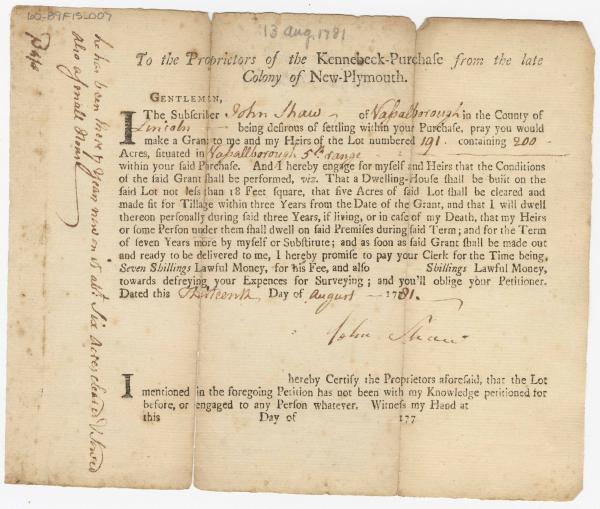 60-89F1S007
13 Aug. 1781
To the Proprietors of the Kennebeck-Purchase from the late
Colony of New-Plymouth.
GENTLEMEN,
The Subscriber John Shaw of Vassalborough in the County of
Lincoln being desirous of settling within your Purchase, pray you would
make a Grant to me and my Heirs of the Lot numbered 191 containing 200
Acres, situated in Vassallborough 5th range
within your said Purchase. And I hereby engage for myself and Heirs that the Conditions
of the said Grant shall be performed, viz. That a Dwelling-House shall be built on the
said Lot not less than 18 Feet square, that five Acres of said Lot shall be cleared and
made fit for Tillage within three Years from the Date of the Grant, and that I will dwell
thereon personally during said three Years, if living, or in case of my Death, that my Heirs
or some Person under them shall dwell on said Premises during said Term; and for the Term
of seven Years more by myself or Substitute; and as soon as said Grant shall be made out
and ready to be delivered to me, I hereby promise to pay your Clerk for the Time being,
Seven Shillings Lawful Money, for his Fee, and also Shillings Lawful Money,
towards defreying your Expences for Surveying; and you'll oblige your Petitioner.
Dated this Thirteenth Day of August 1781.
John Shaw
I hereby Certify the Proprietors aforesaid, that the Lot
mentioned in the foregoing Petition has not been with my Knowledge petitioned for
before, or engaged to any Person whatever. Witness my Hand at
this Day of 177
he has been there 7 years now on it abt. Six acres cleared &
also a small House